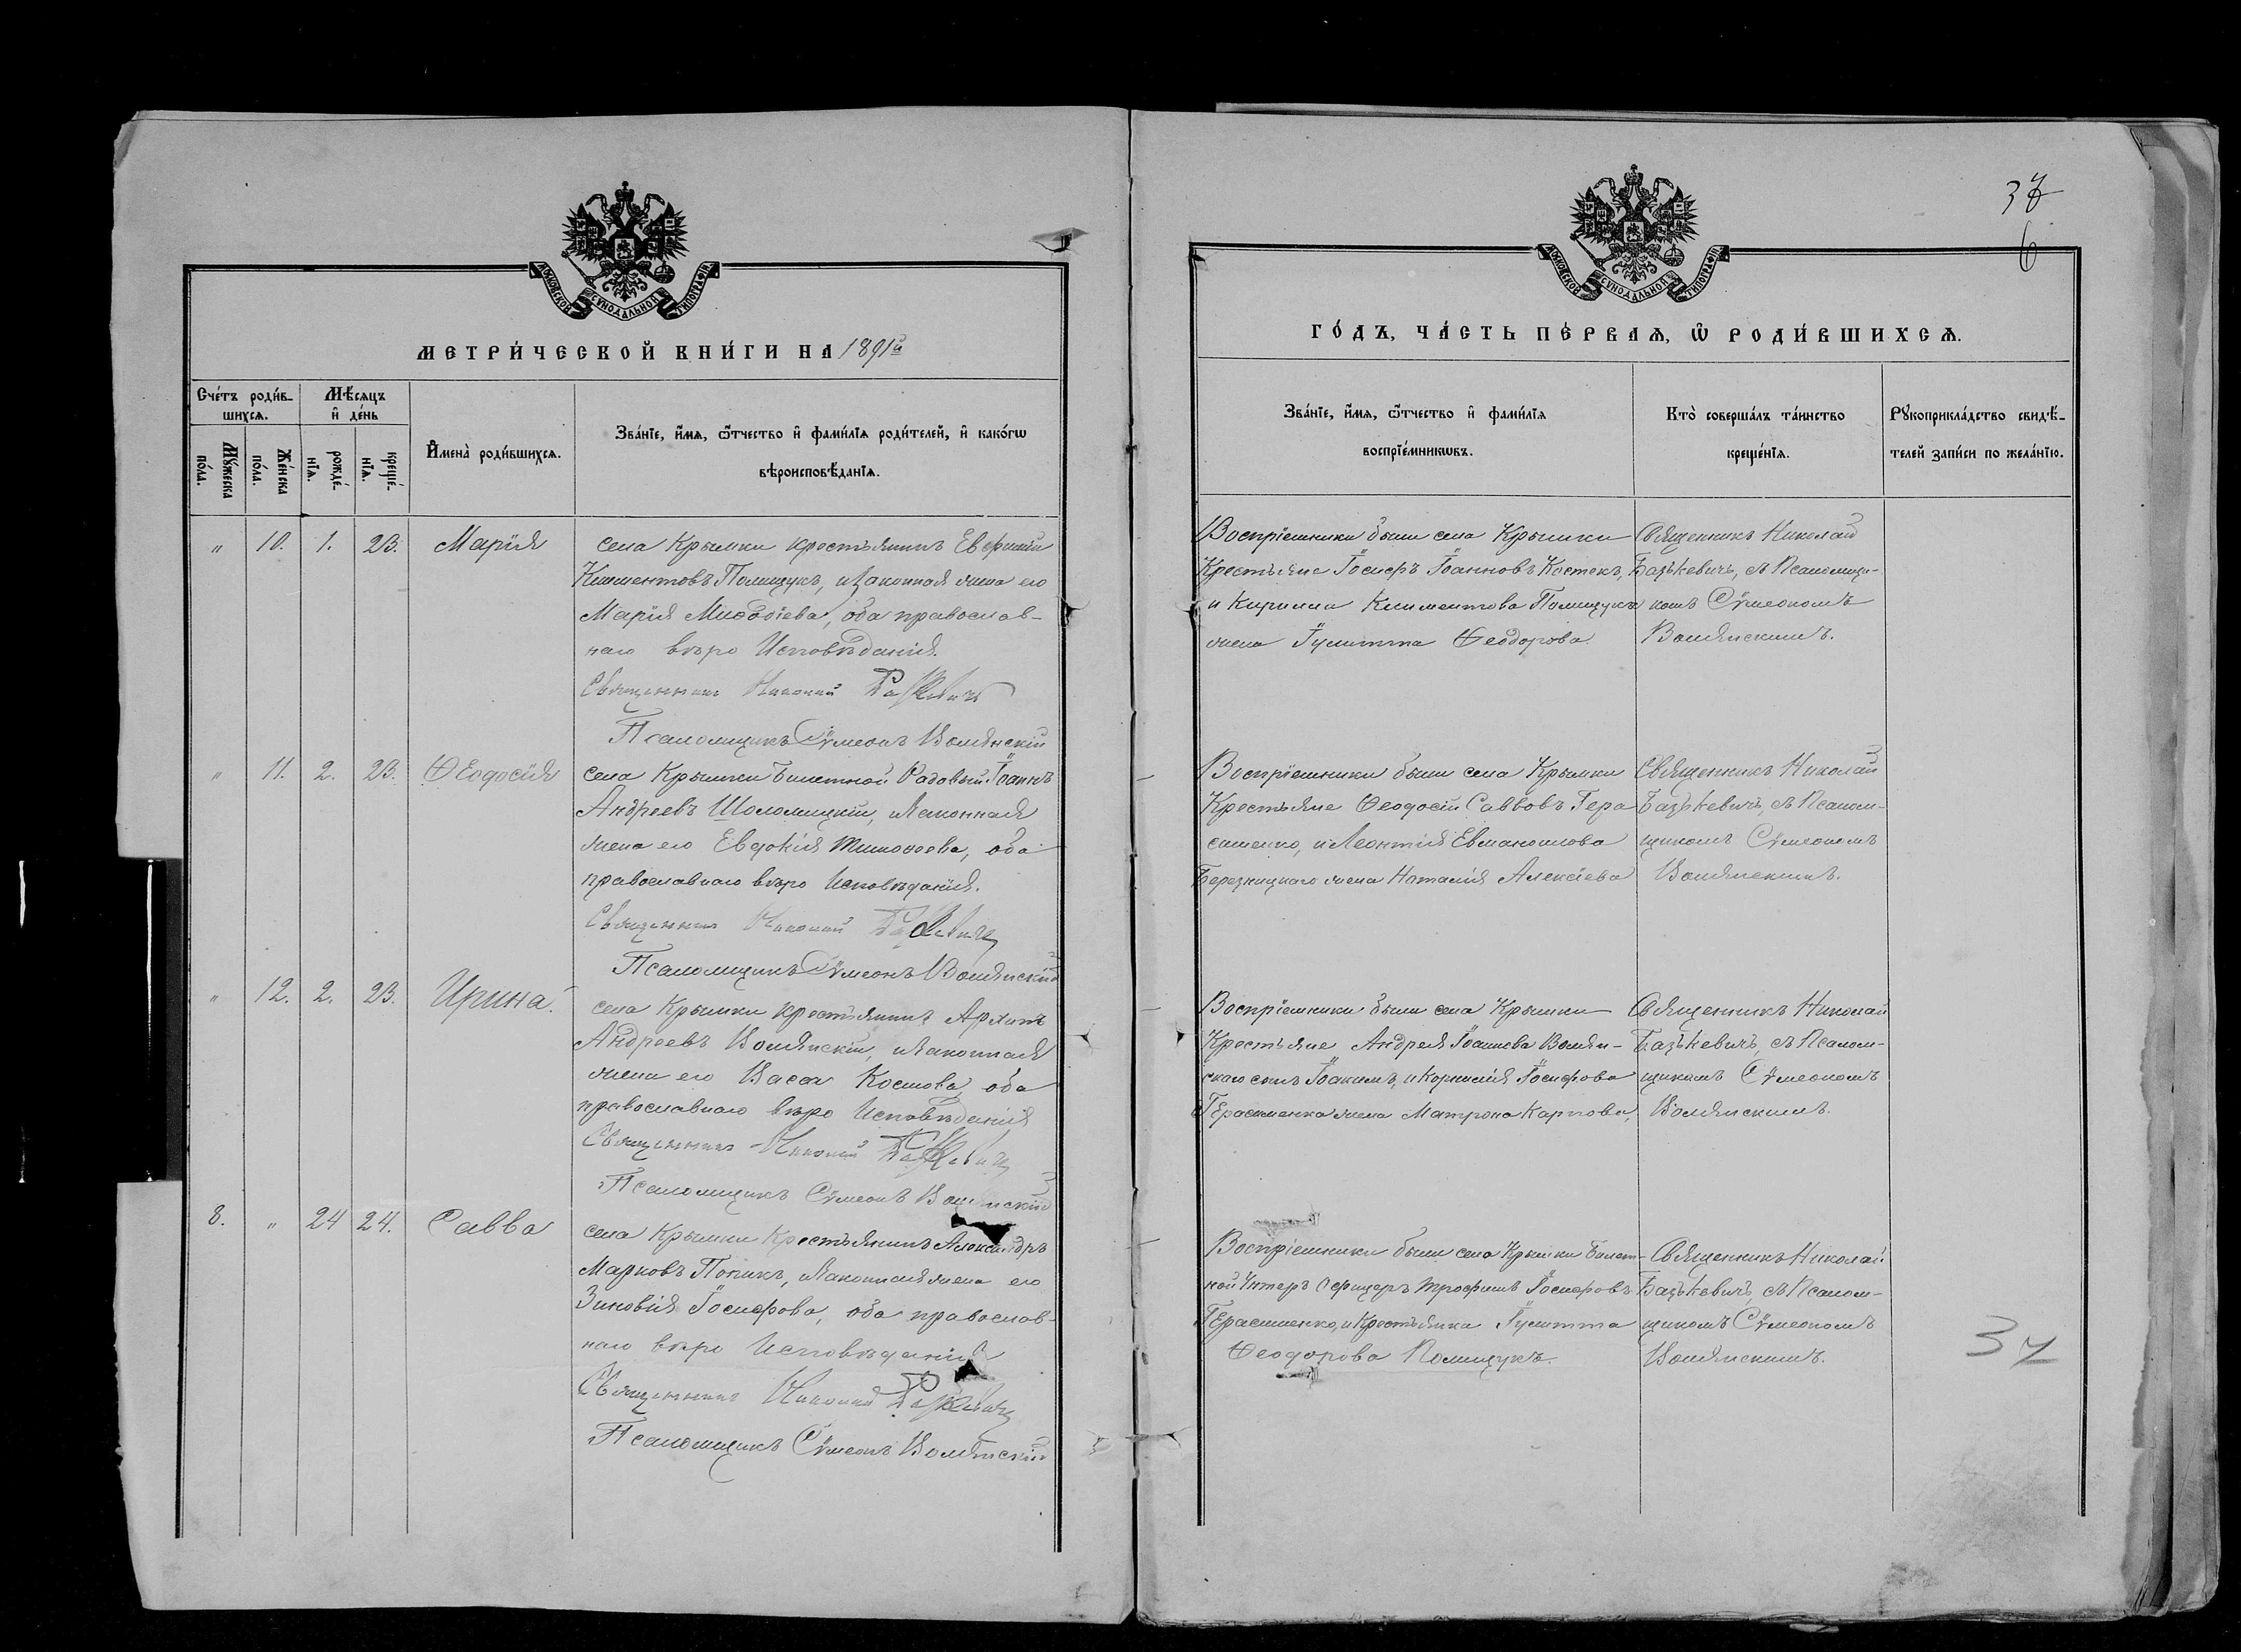 МОСКОВСКОЙ СѴНОДАЛЬНОЙ ТИПОГРАФІИ.
МЕТРИ́ЧЕСКОЙ КНИ́ГИ НА 1891й
Сче́тъ роди́в-
шихсѧ.
Мѣ́сяцъ
и҆ де́нь
Мꙋ́жеска
по́ла.
Же́нска
по́ла.
рожде́-
нїѧ.
креще́-
нїѧ.
И҆мена̀ роди́вшихсѧ.
Зва́нїе, и҆́мѧ, ѻ҆́тчество и҆ фами́лїѧ роди́телей, и҆ како́гѡ
вѣроисповѣ́данїѧ.
„ 10. 1. 23. Марія
села Крымки крестьянинъ Евфимій
Климентовъ Полищукъ, и законная жена его
Марія Миѳодіева, оба православ-
наго вѣро Исповѣданія.
Священникъ Николай Базькевичъ
Псаломщикъ Сѵмеонъ Волянскій
„ 11. 2. 23. Ѳеодосія
села Крымки Билетной Рядовый Іоаннъ
Андреевъ Шоломицкій, и законная
жена его Евдокія Тимоѳеева, оба
православнаго вѣро Исповѣданія.
Священникъ Николай Базькевичъ
Псаломщикъ Сѵмеонъ Волянскій
„ 12. 2. 23. Ирина.
села Крымки крестьянинъ Архипъ
Андреевъ Волянскій, и законная
жена его Васса Космова, оба
православнаго вѣро Исповѣданія
Священникъ Николай Базькевичъ
Псаломщикъ Сѵмеонъ Волянскій
8. „ 24 24. Савва
села Крымки Крестьянинъ Александръ
Марковъ Попикъ, и законная жена его
Зиновія Іосифова, оба православ-
наго вѣро Исповѣданія
Священникъ Николай Базькевичъ
Псаломщикъ Сѵмеонъ Волянскій
37
6
МОСКОВСКОЙ СѴНОДАЛЬНОЙ ТИПОГРАФІИ.
ГО́ДЪ, ЧА́СТЬ ПЕ́РВАѦ, Ѡ҆ РОДИ́ВШИХСѦ.
Зва́нїе, и҆́мѧ, ѻ҆́тчество и҆ фами́лїѧ
воспрїе́мникѡвъ.
Кто̀ соверша́лъ та́инство
креще́нїѧ.
Рꙋкоприкла́дство свидѣ́-
телей за́писи по жела́нїю.
Воспріемники были села Крымки
Крестьяне Іосифъ Іоанновъ Костюкъ,
и Кирилла Климентова Полищука
жена Іулитта Ѳеодорова
Священникъ Николай
Базькевичъ, съ Псаломщи-
комъ Сѵмеономъ
Волянскимъ.
Воспріемники были села Крымки
Крестьяне Ѳеодосій Саввовъ Гера
сименко, и Леонтія Евмановлова
Березницкаго жена Наталія Алексіева
Священникъ Николай
Базькевичъ, съ Псалом-
щикомъ Сѵмеономъ
Волянскимъ.
Воспріемники были села Крымки
Крестьяне Андрея Іоаннова Волян-
скаго сынъ Іоакимъ, и Корнилія Іосифова
Герасименка жена Матрона Карпова,
Священникъ Николай
Базькевичъ, съ Псалом-
щикомъ Сѵмеономъ
Волянскимъ.
Воспріемники были села Крымки Билет-
ной Унтеръ Офицеръ Трофимъ Іосифовъ
Герасименко, и Крестьянка Іулитта
Ѳеодорова Полищукъ.
Священникъ Николай
Базькевичъ, съ Псалом-
щикомъ Сѵмеономъ
Волянскимъ.
37